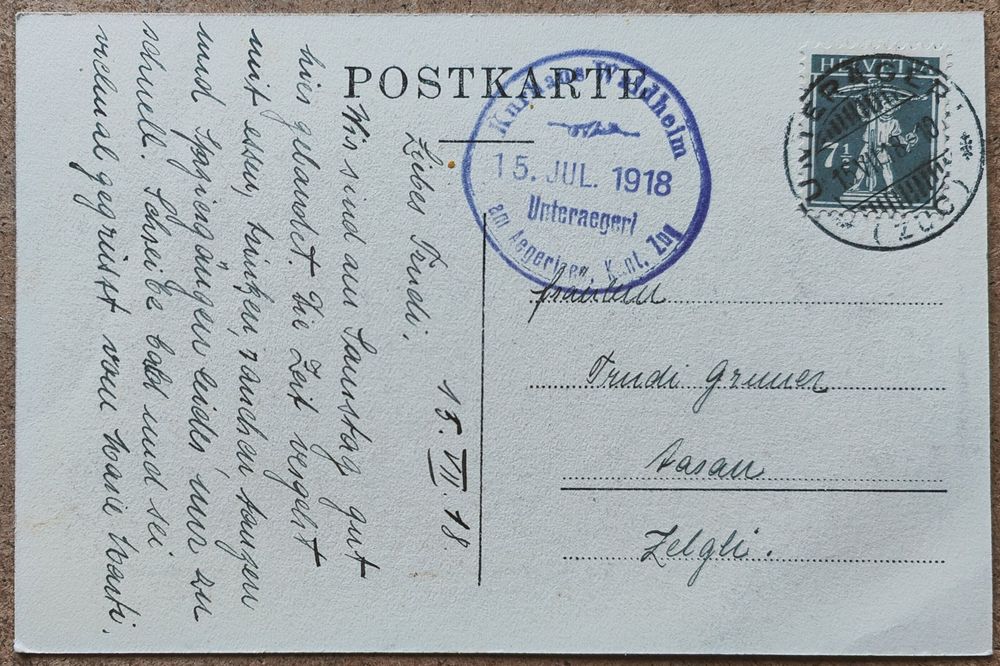 POSTKARTE
Kurhaus Waldheim
15. JUL. 1918
Unteraegeri
am Aegerisee, Kant. Zug
HELVETIA
7½
UNTERÄGERI
(ZUG)
15. VII. 18.
Liebes Trudi,
Wir sind am Samstag gut
hier gelandet. Die Zeit vergeht
mit essen, trinken, rauchen, tanzen
und Spaziergängen leider, nur zu
schnell. Schreibe bald und sei
vielmal gegrüsst von
Fräulein
Trudi
Aarau
Zelgli.